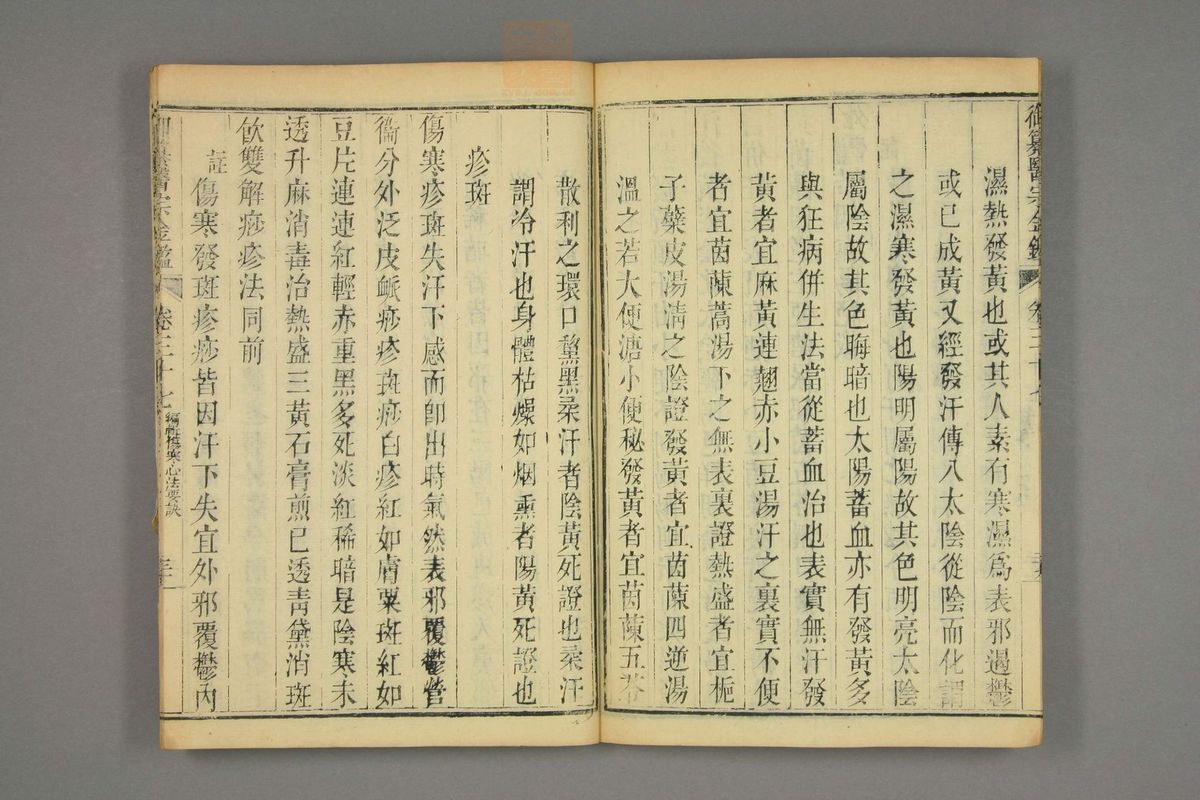 御纂醫宗金鑑 卷三十七
濕熱發黃也或其人素有寒濕爲表邪遏鬱
或已成黃又經發汗傳入太陰從陰而化謂
之濕寒發黃也陽明屬陽故其色明亮太陰
屬陰故其色晦暗也太陽蓄血亦有發黃多
與狂病併生法當從蓄血治也表實無汗發
黃者宜麻黃連翹赤小豆湯汗之裏實不便
者宜茵蔯蒿湯下之無表裏證熱盛者宜梔
子蘗皮湯淸之陰證發黃者宜茵蔯四逆湯
溫之若大便溏小便秘發黃者宜茵蔯五苓
散利之環口黧黑柔汗者陰黃死證也柔汗
謂冷汗也身體枯燥如烟熏者陽黃死證也
疹斑
傷寒疹斑失汗下感而卽出時氣然表邪覆鬱營
衞分外泛皮䘑痧疹斑痧白疹紅如膚粟斑紅如
豆片連連紅輕赤重黑多死淡紅稀暗是陰寒未
透升麻消毒治熱盛三黃石膏煎已透靑黛消斑
飮雙解痧疹法同前
註傷寒發斑疹痧皆因汗下失宜外邪覆鬱內
御纂醫宗金鑑 卷三十七 編輯傷寒心法要訣